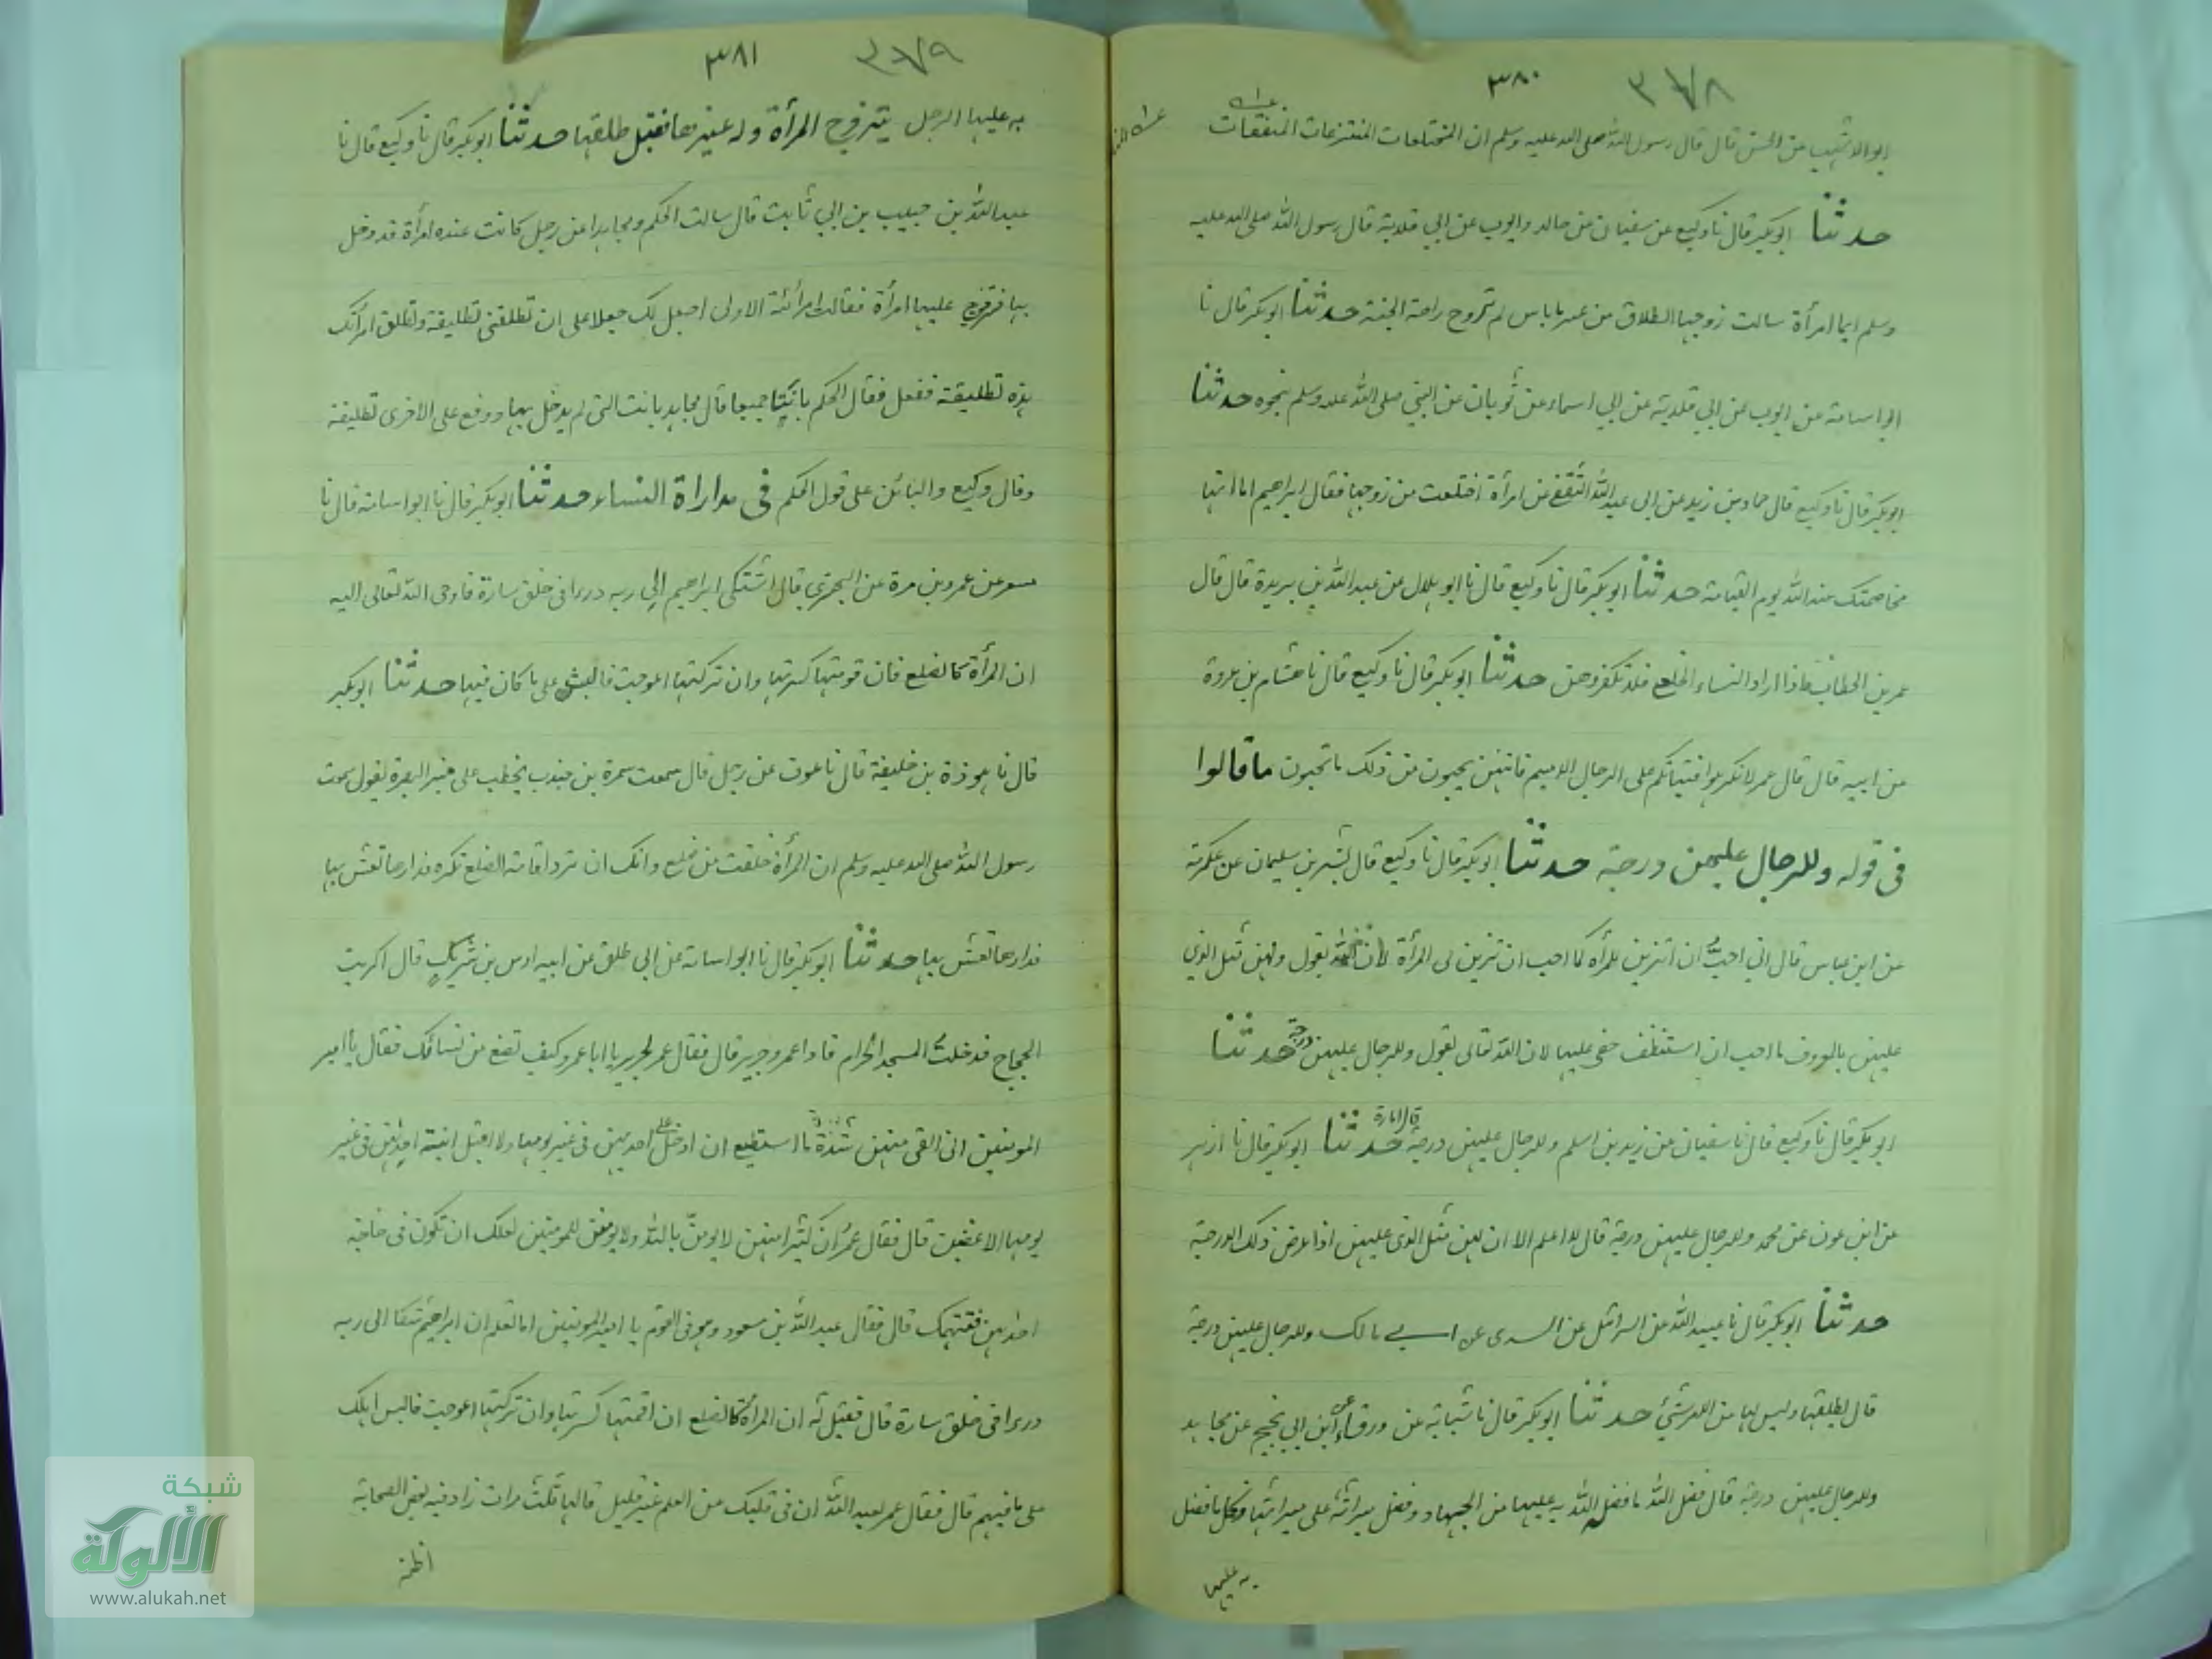 ٣٨٠
ابو الاشهب عن الحسن قال قال رسول الله صلى الله عليه وسلم ان المختلعات المنتزعات المنفقات
حدثنا ابوبكر قال نا وكيع عن سفيان عن خالد وايوب عن ابي قلابة قال رسول الله صلى الله عليه
وسلم ايما امرأة سالت زوجها الطلاق من غير باباس لم تروح رائحة الجنة حدثنا ابوبكر قال نا
ابو اسامة عن ايوب عن ابي قلابة عن ابي اسماء عن ثوبان عن النبي صلى الله عليه وسلم بنحوه حدثنا
ابوبكر قال نا وكيع قال حماد بن زيد عن ابي عبد الله الثقفي عن امرأة اختلعت من زوجها فقال ابراهيم اما انها
مخاصمتك عند الله يوم القيامة حدثنا ابوبكر قال نا وكيع قال نا ابو هلال عن عبد الله بن بريدة قال قال
عمر بن الخطاب اذا اراد النساء الخلع فلا تكفروهن حدثنا ابوبكر قال نا وكيع قال نا هشام بن عروة
عن ابيه قال قال عمر لا تكرهوا فتياتكم على الرجال الدميم فانهن يحببن من ذلك ما تحبون ما قالوا
فى قوله وللرجال عليهن درجة حدثنا ابوبكر قال نا وكيع قال بشير بن سليمان عن عكرمة
عن ابن عباس قال اني احبُّ ان اتزين للمرأه كما احب ان تتزين لى المرأة لان الله يقول ولهن مثل الذي
عليهن بالمعروف ما احب ان استنظف حقى عليها لان الله تعالى يقول وللرجال عليهن درجة حدثنا
ابوبكر قال نا وكيع قال نا سفيان عن زيد بن اسلم وللرجال عليهن درجة قال امارة حدثنا ابوبكر قال نا ازهر
عن ابن عون عن محمد وللرجال عليهن درجة قال لا اعلم الا ان لهن مثل الذى عليهن اذا عرض ذلك الدرجة
حدثنا ابوبكر قال نا عبيد الله عن اسرائيل عن السدى عن ابي مالك وللرجال عليهن درجة
قال يطلقها وليس لها من الامر شئ حدثنا ابوبكر قال نا شبابة عن ورقاء عن ابن ابي نجيح عن مجاهد
وللرجال عليهن درجة قال فضل الله ما فضل الله به عليها من الجهاد وفضل ميراثه على ميراثها وكل ما فضل
به عليها
٣٨١
به عليها الرجل يتزوج المرأة وله غيرها فقيل طلقها حدثنا ابوبكر قال نا وكيع قال نا
عبد الله بن حبيب بن ابي ثابت قال سالت الحكم ومجاهدا عن رجل كانت عنده امرأة قد دخل
بها فتزوج عليها امرأة فقالت امرأته الاولى اجعل لك جعلا على ان تطلقني تطليقة وتطلق امرأتك
هذه تطليقة ففعل فقال الحكم بانتا جميعا قال مجاهد بانت التى لم يدخل بها ووقع على الاخرى تطليقة
وقال وكيع والناس على قول الحكم فى مداراة النساء حدثنا ابوبكر قال نا ابو اسامة قال نا
مسعر عن عمرو بن مرة عن البحترى قال اشتكى ابراهيم الى ربه درءا فى خلق سارة فاوحى الله تعالى اليه
ان المرأة كالضلع فان قومتها كسرتها وان تركتها اعوجت فالبس على ما كان فيها حدثنا ابوبكر
قال نا هوذة بن خليفة قال نا عوف عن رجل قال سمعت سمرة بن جندب يخطب على منبر البصرة يقول سمعت
رسول الله صلى الله عليه وسلم ان المرأة خلقت من ضلع وانك ان ترد اقامة الضلع تكسره فدارها تعش بها
فدارها تعش بها حدثنا ابوبكر قال نا ابو اسامة عن ابي طلق عن ابيه اوس بن شريك قال اكريت
الحجاج فدخلت المسجد الحرام فاذا عمر وجرير قال فقال عمر لجرير يا ابا عمرو كيف تصنع من نسائك فقال يا امير
المومنين انى القى منهن شدة ما استطيع ان ادخل على احديهن فى غير يومها ولا اقبل ابنة احداهن فى غير
يومها الا غضبت قال فقال عمر ان كثيرا منهن لا يومن بالله ولا يومن للمومنين لعلك ان تكون فى حاجة
احداهن فتتهمك قال فقال عبد الله بن مسعود وهو فى القوم يا امير المومنين اما تعلم ان ابراهيم شكا الى ربه
درءا فى خلق سارة قال فقيل له ان المرأة كالضلع ان اقمتها كسرتها وان تركتها اعوجت فالبس اهلك
على ما فيهم قال فقال عمر لعبد الله ان فى قلبك من العلم غير قليل قالها ثلث مرات زاد فيه بعض اصحابه
شبكة
الألوكة
www.alukah.net